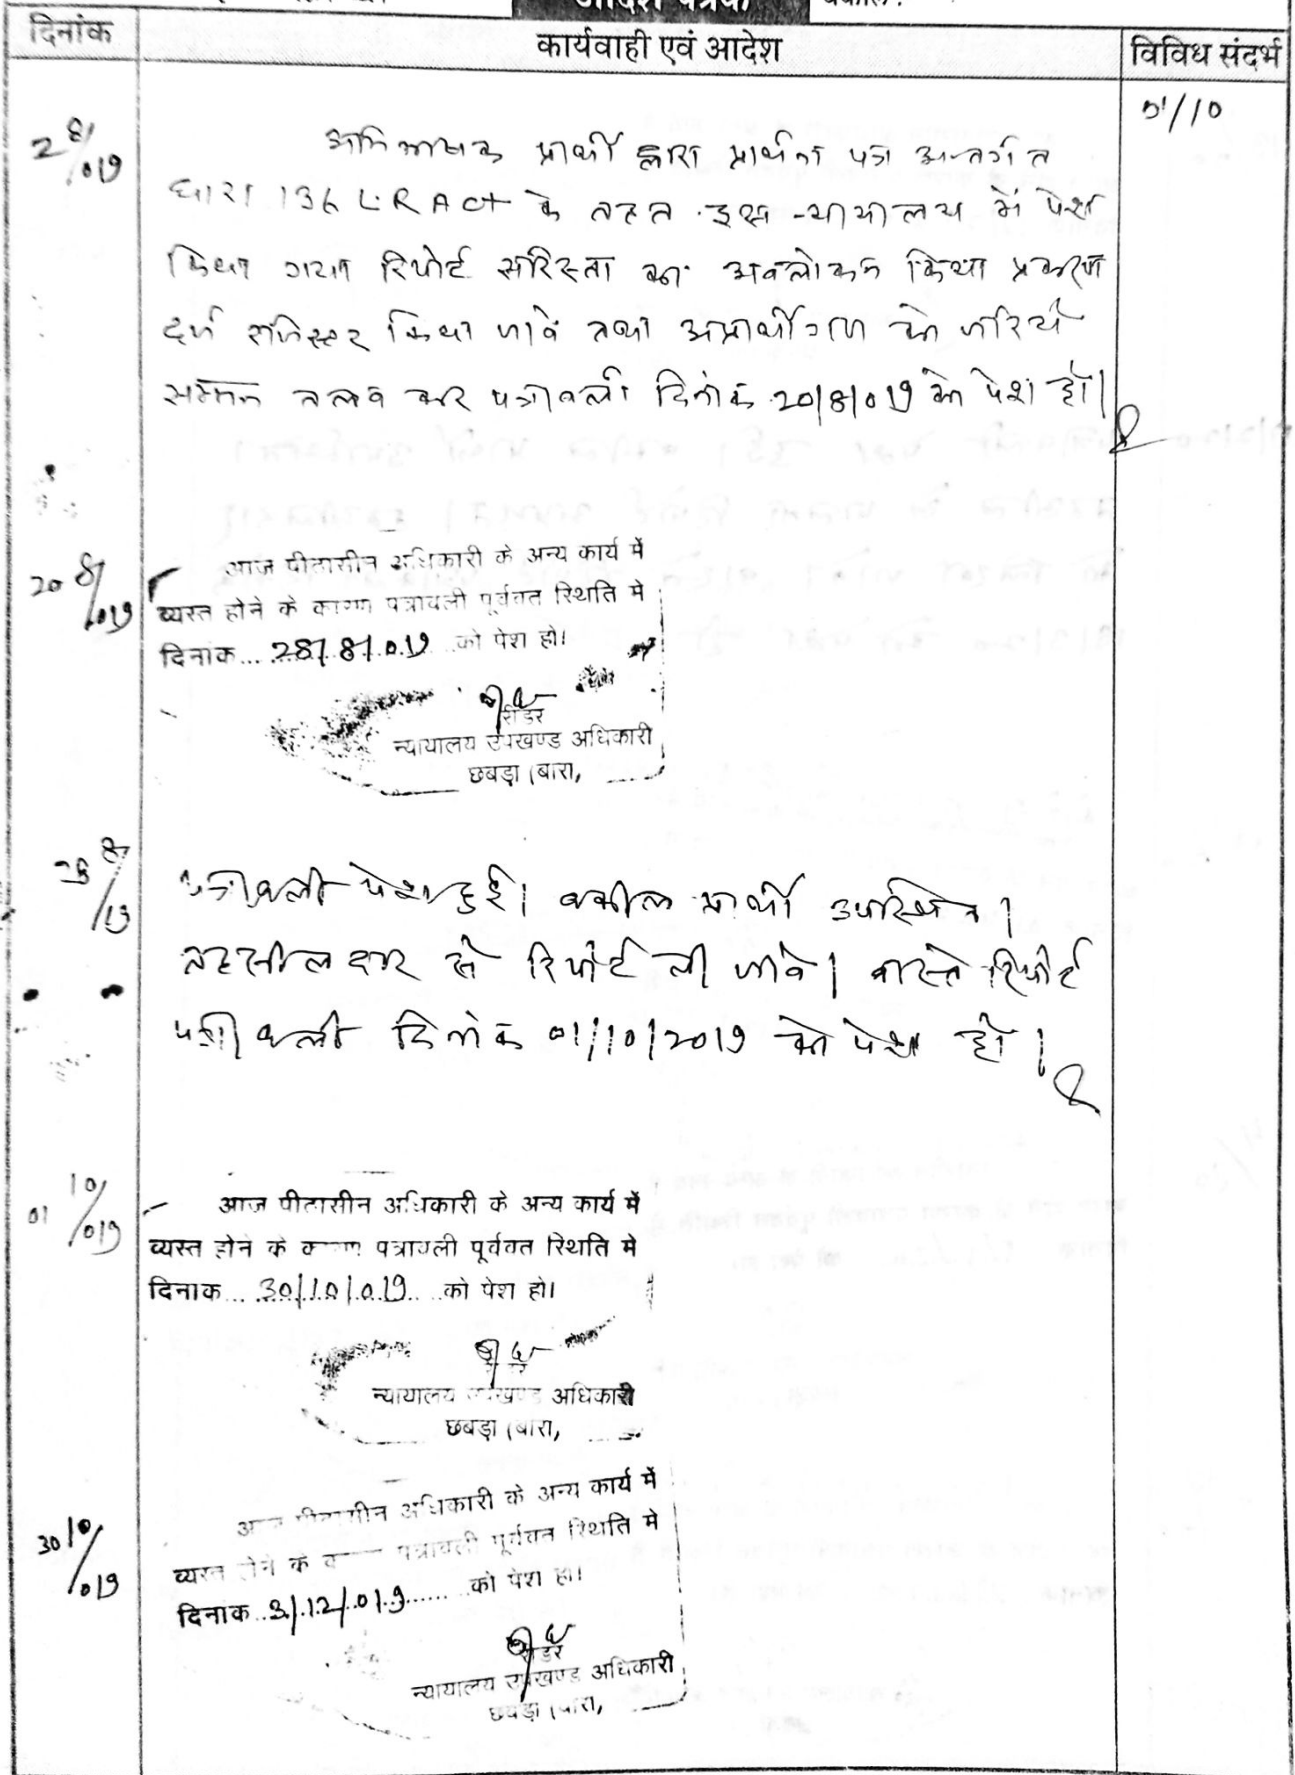 आदेश पत्रक
दिनांक कार्यवाही एवं आदेश विविध संदर्भ
01/10
2 8/019 अभिभाषक प्रार्थी द्वारा प्रार्थना पत्र अन्तर्गत
धारा 136 L.R Act के तहत इस न्यायालय में पेश
किया गया रिपोर्ट सरिस्ता का अवलोकन किया प्रकरण
दर्ज रजिस्टर किया जावे तथा अप्रार्थीगण को जरिये
सम्मन तलब कर पत्रावली दिनांक 20/8/019 को पेश हो।
20 8/019 आज पीठासीन अधिकारी के अन्य कार्य में
व्यस्त होने के कारण पत्रावली पूर्ववत स्थिति मे
दिनांक... 28/8/019 को पेश हो।
रीडर
न्यायालय उपखण्ड अधिकारी
छबड़ा (बारा,
28 8/19 पत्रावली पेश हुई। वकील प्रार्थी उपस्थित।
तहसीलदार से रिपोर्ट ली जावे। वास्ते रिपोर्ट
पत्रावली दिनांक 01/10/2019 को पेश हो।
01 10/019 आज पीठासीन अधिकारी के अन्य कार्य में
व्यस्त होने के कारण पत्रावली पूर्ववत स्थिति मे
दिनांक... 30/10/019 ...को पेश हो।
न्यायालय उपखण्ड अधिकारी
छबड़ा (बारा,
30 10/019 आज पीठासीन अधिकारी के अन्य कार्य में
व्यस्त होने के पत्रावली पूर्ववत स्थिति मे
दिनांक..3/12/019...... को पेश हो।
रीडर
न्यायालय उपखण्ड अधिकारी
छबड़ा (बारा,